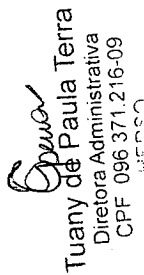 Tuany de Paula Terra
Diretora Administrativa
CPF 096 371.216-09